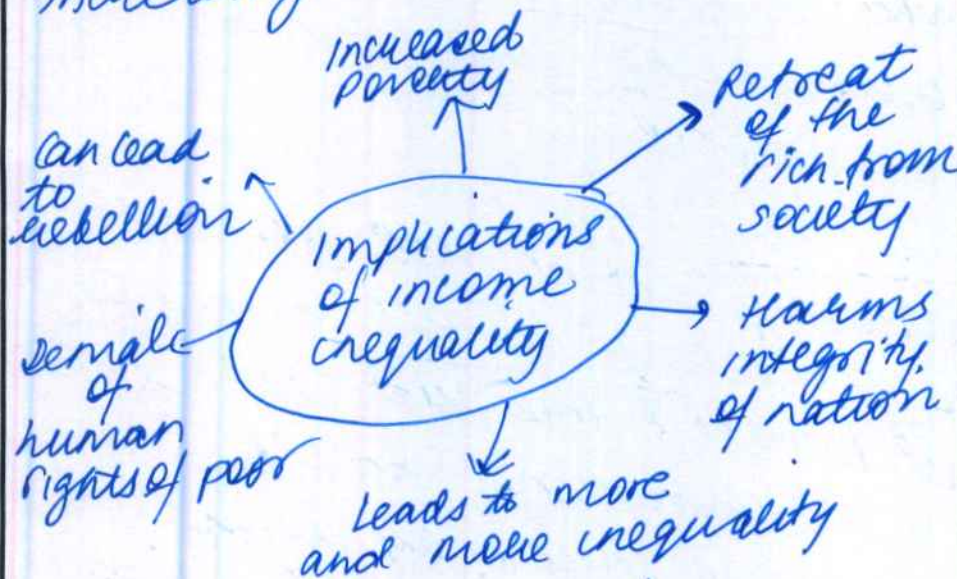 Increased
poverty
Retreat
of the
rich from
society
can lead
to
rebellion
Implications
of income
inequality
Harms
integrity
of nation
Denial
of
human
rights of poor
Leads to more
and more inequality